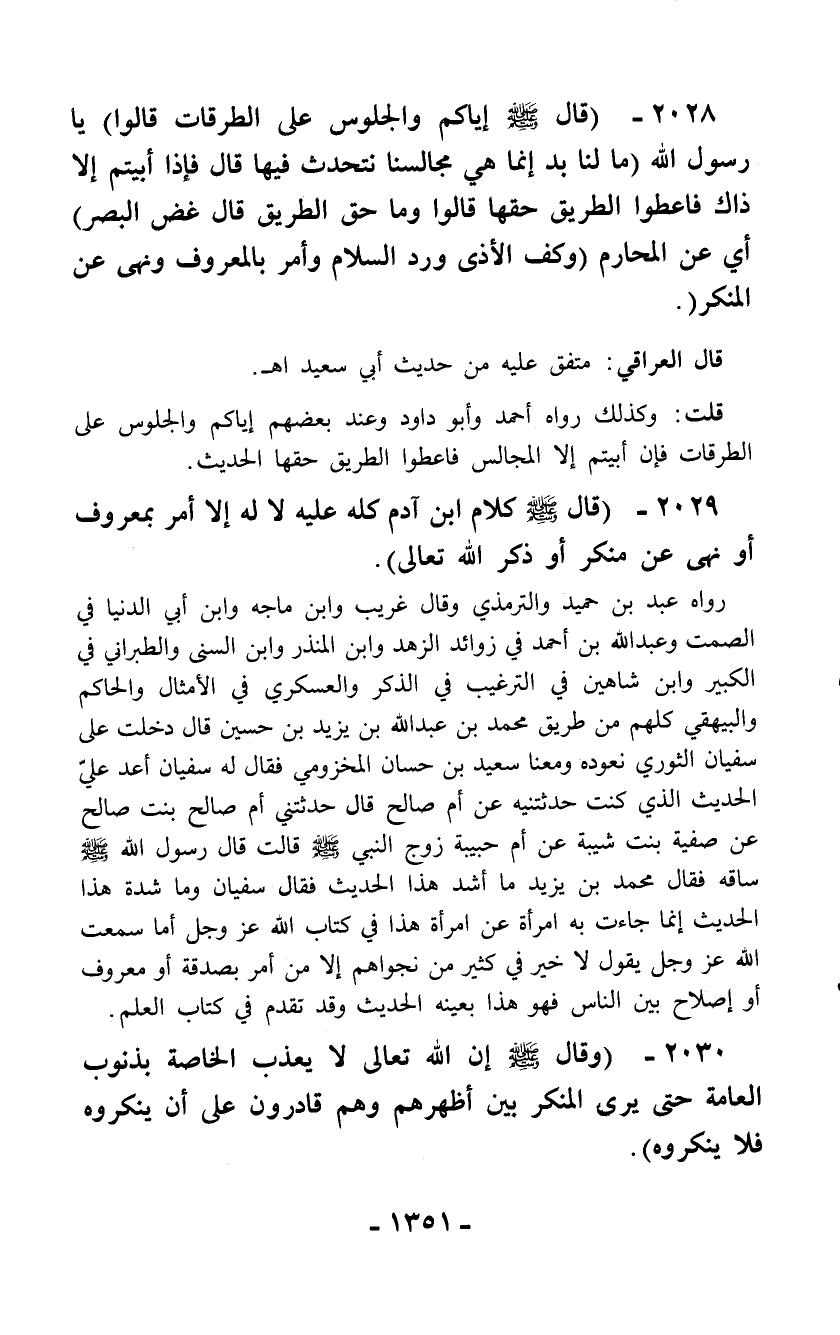 ٢٠٢٨ ـ (قال ﷺ إياكم والجلوس على الطرقات قالوا) يا
رسول الله (ما لنا بد إنما هي مجالسنا نتحدث فيها قال فإذا أبيتم إلا
ذاك فاعطوا الطريق حقها قالوا وما حق الطريق قال غض البصر)
أي عن المحارم (وكف الأذى ورد السلام وأمر بالمعروف ونهى عن
المنكر(.
قال العراقي: متفق عليه من حديث أبي سعيد اهـ.
قلت: وكذلك رواه أحمد وأبو داود وعند بعضهم إياكم والجلوس على
الطرقات فإن أبيتم إلا المجالس فاعطوا الطريق حقها الحديث.
٢٠٢٩ ـ (قال ﷺ كلام ابن آدم كله عليه لا له إلا أمر بمعروف
أو نهى عن منكر أو ذكر الله تعالى).
رواه عبد بن حميد والترمذي وقال غريب وابن ماجه وابن أبي الدنيا في
الصمت وعبدالله بن أحمد في زوائد الزهد وابن المنذر وابن السنى والطبراني في
الكبير وابن شاهين في الترغيب في الذكر والعسكري في الأمثال والحاكم
والبيهقي كلهم من طريق محمد بن عبدالله بن يزيد بن حسين قال دخلت على
سفيان الثوري نعوده ومعنا سعيد بن حسان المخزومي فقال له سفيان أعد عليّ
الحديث الذي كنت حدثتنيه عن أم صالح قال حدثتني أم صالح بنت صالح
عن صفية بنت شيبة عن أم حبيبة زوج النبي ﷺ قالت قال رسول الله ﷺ
ساقه فقال محمد بن يزيد ما أشد هذا الحديث فقال سفيان وما شدة هذا
الحديث إنما جاءت به امرأة عن امرأة هذا في كتاب الله عز وجل أما سمعت
الله عز وجل يقول لا خير في كثير من نجواهم إلا من أمر بصدقة أو معروف
أو إصلاح بين الناس فهو هذا بعينه الحديث وقد تقدم في كتاب العلم.
٢٠٣٠ ـ (وقال ﷺ إن الله تعالى لا يعذب الخاصة بذنوب
العامة حتى يرى المنكر بين أظهرهم وهم قادرون على أن ينكروه
فلا ينكروه).
ـ ١٣٥١ ـ